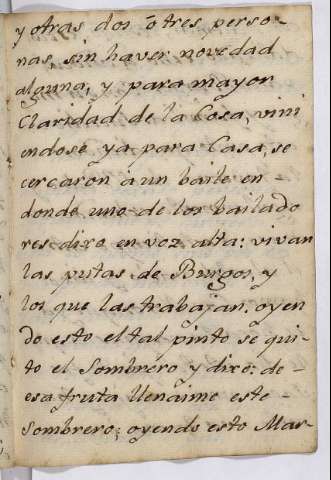 y otras dos ò tres perso-
nas, sin haver novedad
alguna, y para mayor
Claridad de la Cosa, vini
endose ya para Casa, se
cercaron à un baile en-
donde uno de los bailado
res dixo en voz alta: vivan
las putas de Burgos, y
los que las trabajan. oyen
do esto el tal pinto se qui-
tò el Sombrero y dixo: de-
esa fruta llenaime este-
Sombrero; oyendo esto Mar-